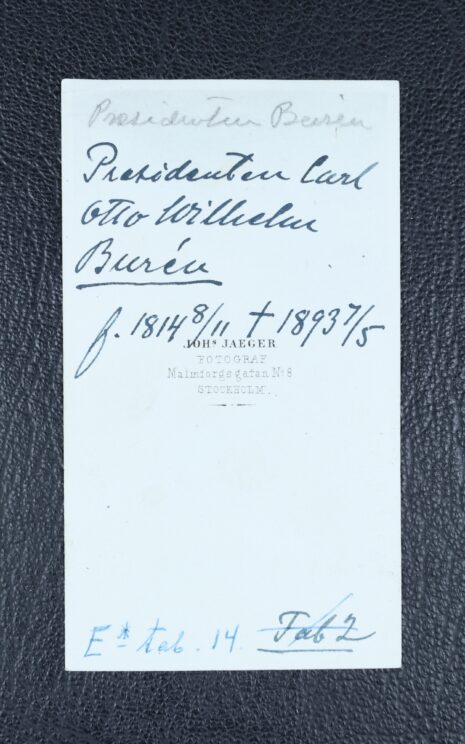 Presidenten Burén
Presidenten Carl
Otto Wilhelm
Burén
f. 1814 8/11 † 1893 7/5
JOHS JAEGER
FOTOGRAF
Malmtorgsgatan No 8
STOCKHOLM.
E* tab. 14. Tab 2